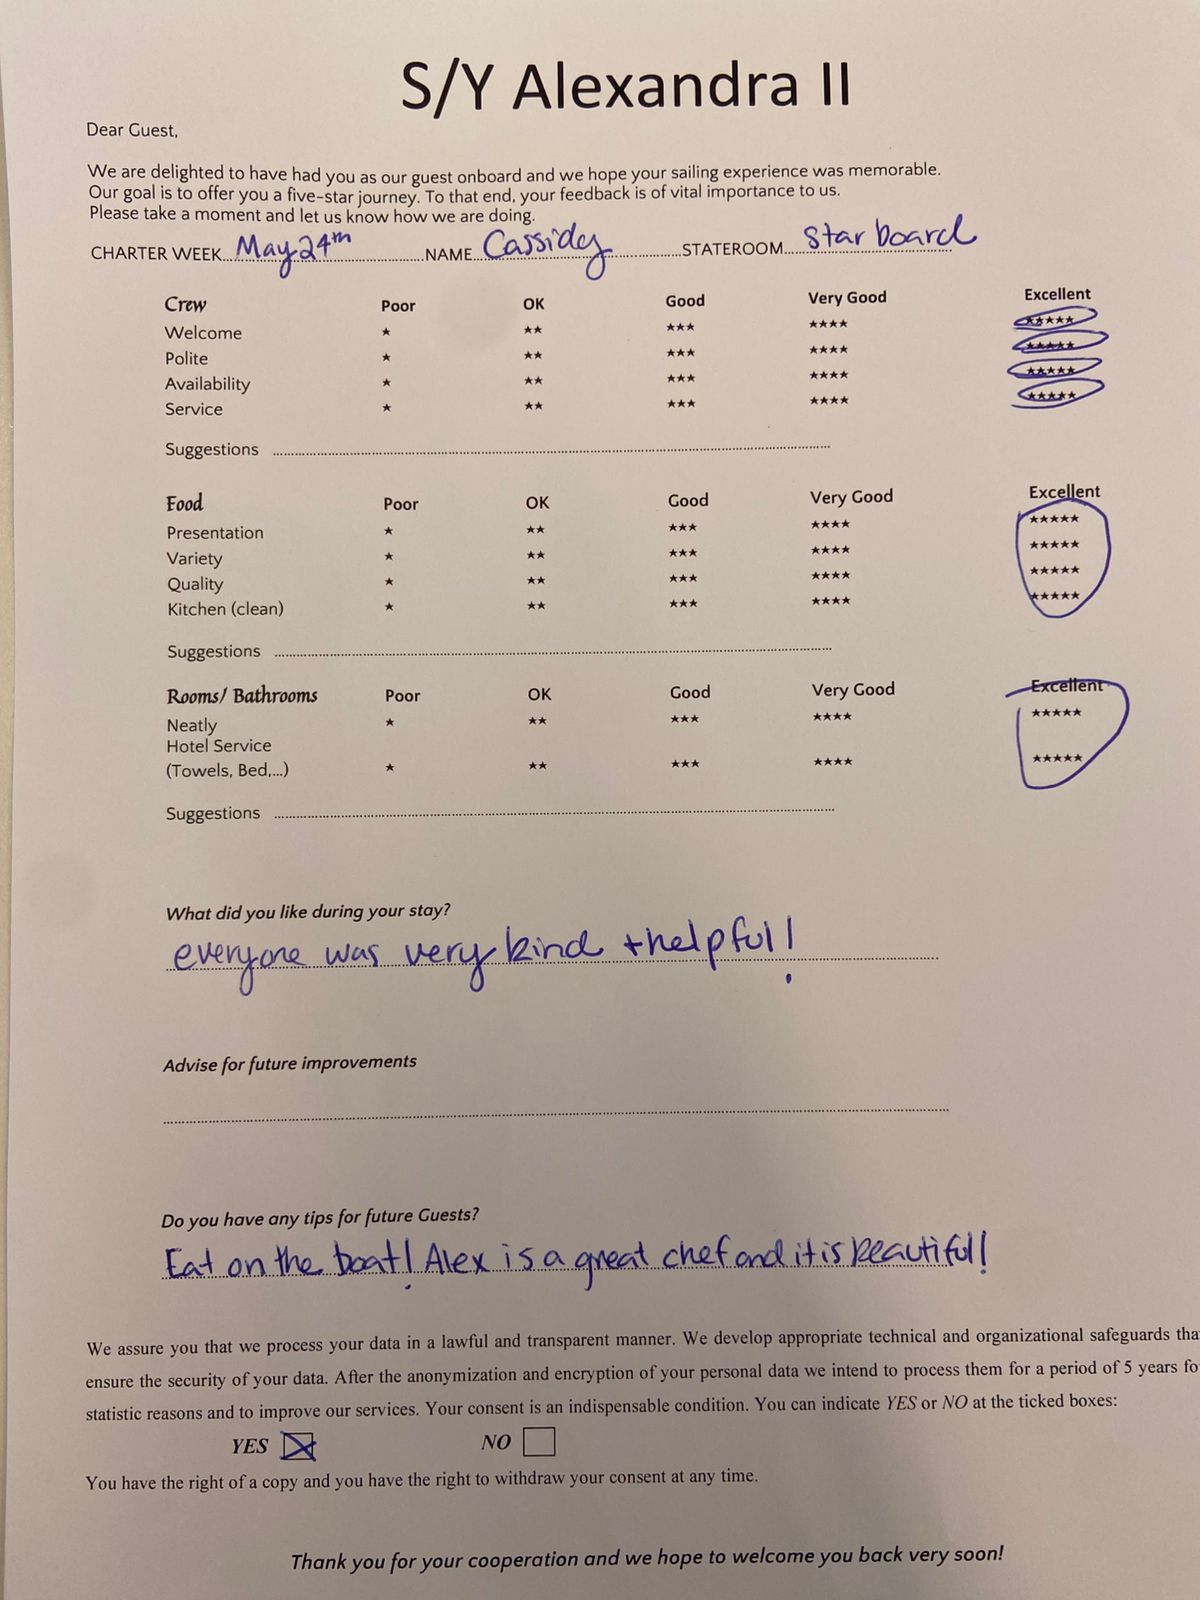 S/Y Alexandra II
Dear Guest,
We are delighted to have had you as our guest onboard and we hope your sailing experience was memorable.
Our goal is to offer you a five-star journey. To that end, your feedback is of vital importance to us.
Please take a moment and let us know how we are doing.
CHARTER WEEK May 24th NAME Cassidy STATEROOM Starboard
Crew Poor OK Good Very Good Excellent
Welcome ★ ★★ ★★★ ★★★★ ★★★★★
Polite ★ ★★ ★★★ ★★★★ ★★★★★
Availability ★ ★★ ★★★ ★★★★ ★★★★★
Service ★ ★★ ★★★ ★★★★ ★★★★★
Suggestions
Food Poor OK Good Very Good Excellent
Presentation ★ ★★ ★★★ ★★★★ ★★★★★
Variety ★ ★★ ★★★ ★★★★ ★★★★★
Quality ★ ★★ ★★★ ★★★★ ★★★★★
Kitchen (clean) ★ ★★ ★★★ ★★★★ ★★★★★
Suggestions
Rooms/ Bathrooms Poor OK Good Very Good Excellent
Neatly ★ ★★ ★★★ ★★★★ ★★★★★
Hotel Service
(Towels, Bed,...) ★ ★★ ★★★ ★★★★ ★★★★★
Suggestions
What did you like during your stay?
everyone was very kind + helpful!
Advise for future improvements
Do you have any tips for future Guests?
Eat on the boat! Alex is a great chef and it is beautiful!
We assure you that we process your data in a lawful and transparent manner. We develop appropriate technical and organizational safeguards tha
ensure the security of your data. After the anonymization and encryption of your personal data we intend to process them for a period of 5 years fo
statistic reasons and to improve our services. Your consent is an indispensable condition. You can indicate YES or NO at the ticked boxes:
YES NO
You have the right of a copy and you have the right to withdraw your consent at any time.
Thank you for your cooperation and we hope to welcome you back very soon!